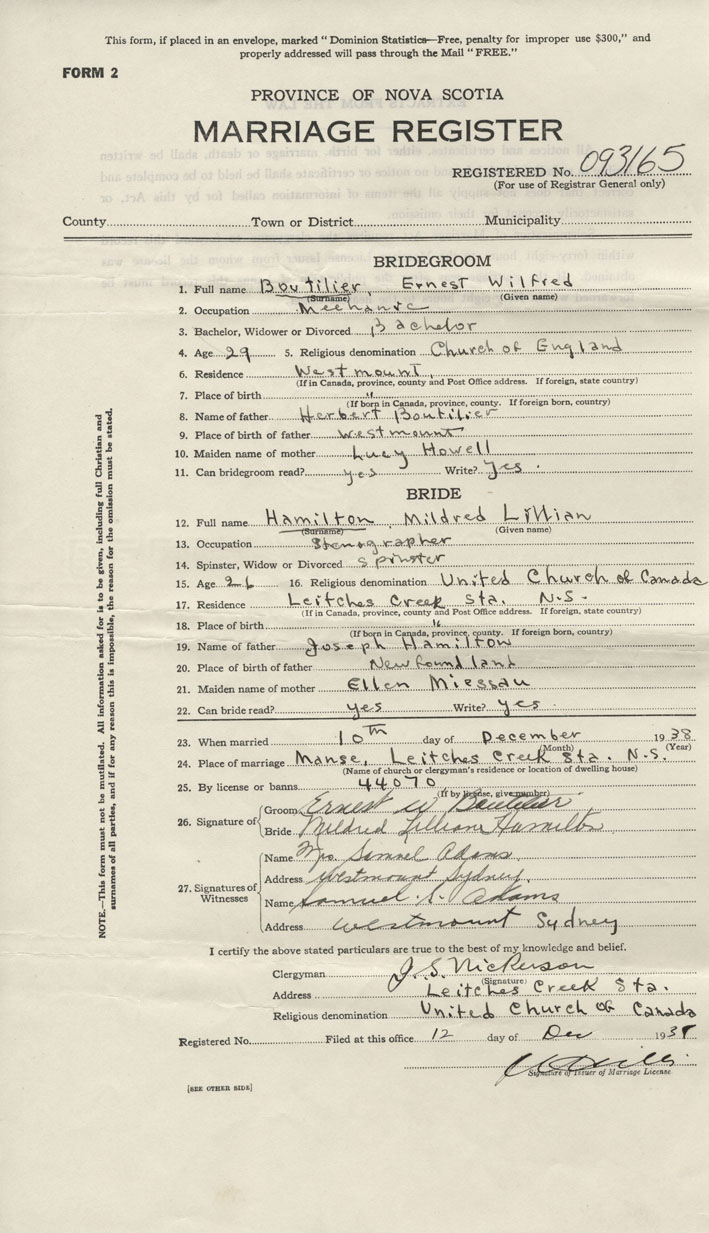 This form, if placed in an envelope, marked "Dominion Statistics—Free, penalty for improper use $300," and
properly addressed will pass through the Mail "FREE."
FORM 2
PROVINCE OF NOVA SCOTIA
MARRIAGE REGISTER
REGISTERED No. 093165
(For use of Registrar General only)
County Town or District Municipality
BRIDEGROOM
1. Full name Boutilier, Ernest Wilfred
(Surname) (Given name)
2. Occupation Mechanic
3. Bachelor, Widower or Divorced Bachelor
4. Age 29 5. Religious denomination Church of England
6. Residence Westmount,
(If in Canada, province, county and Post Office address. If foreign, state country)
7. Place of birth "
(If born in Canada, province, county. If foreign born, country)
8. Name of father Herbert Boutilier
9. Place of birth of father Westmount
10. Maiden name of mother Lucy Howell
11. Can bridegroom read? yes Write? yes.
BRIDE
12. Full name Hamilton, Mildred Lillian
(Surname) (Given name)
13. Occupation Stenographer
14. Spinster, Widow or Divorced Spinster
15. Age 26 16. Religious denomination United Church of Canada
17. Residence Leitches Creek Sta. N.S.
(If in Canada, province, county and Post Office address. If foreign, state country)
18. Place of birth "
(If born in Canada, province, county. If foreign born, country)
19. Name of father Joseph Hamilton
20. Place of birth of father Newfoundland
21. Maiden name of mother Ellen Miessau
22. Can bride read? yes Write? yes.
23. When married 10th day of December 1938
(Month) (Year)
24. Place of marriage Manse, Leitches Creek Sta. N.S.
(Name of church or clergyman's residence or location of dwelling house)
25. By license or banns 44070
(If by license, give number)
26. Signature of Groom Ernest W Boutilier
Bride Mildred Lillian Hamilton
27. Signatures of Witnesses Name Mrs. Samuel Adams
Address Westmount Sydney
Name Samuel S. Adams
Address Westmount Sydney
I certify the above stated particulars are true to the best of my knowledge and belief.
Clergyman J.S. Nickerson
(Signature)
Address Leitches Creek Sta.
Religious denomination United Church of Canada
Registered No. Filed at this office 12 day of Dec 193
Signature of Issuer of Marriage License
[SEE OTHER SIDE]
NOTE.—This form must not be mutilated. All information asked for is to be given, including full Christian and
surnames of all parties, and if for any reason this is impossible, the reason for the omission must be stated.